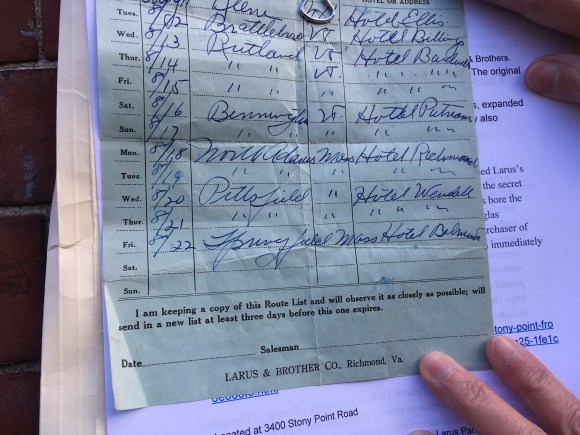 HOTEL OR ADDRESS
Tues. 8/12 Hotel Ellis
Wed. 8/13 Brattleboro Vt Hotel Billings
Thur. 8/14 Rutland Vt Hotel Bardwell
Fri. 8/15 " " Vt. " " " "
Sat. 8/16 Bennington Vt. Hotel Putnam
Sun. 8/17 " " " " " "
Mon. 8/18 North Adams Mass Hotel Richmond
Tues. 8/19 " " " " "
Wed. 8/20 Pittsfield " Hotel Wendell
Thur. 8/21 " " " " " "
Fri. 8/22 Springfield Mass Hotel Belmont
Sat.
Sun.
I am keeping a copy of this Route List and will observe it as closely as possible; will
send in a new list at least three days before this one expires.
Date Salesman
LARUS & BROTHER CO., Richmond, Va.
Brothers.
The original
, expanded
also
ed Larus's
the secret
s bore the
glas
rchaser of
immediately
tony-point-fro
25-1fe1c
ocated at 3400 Stony Point Road
Larus Pa